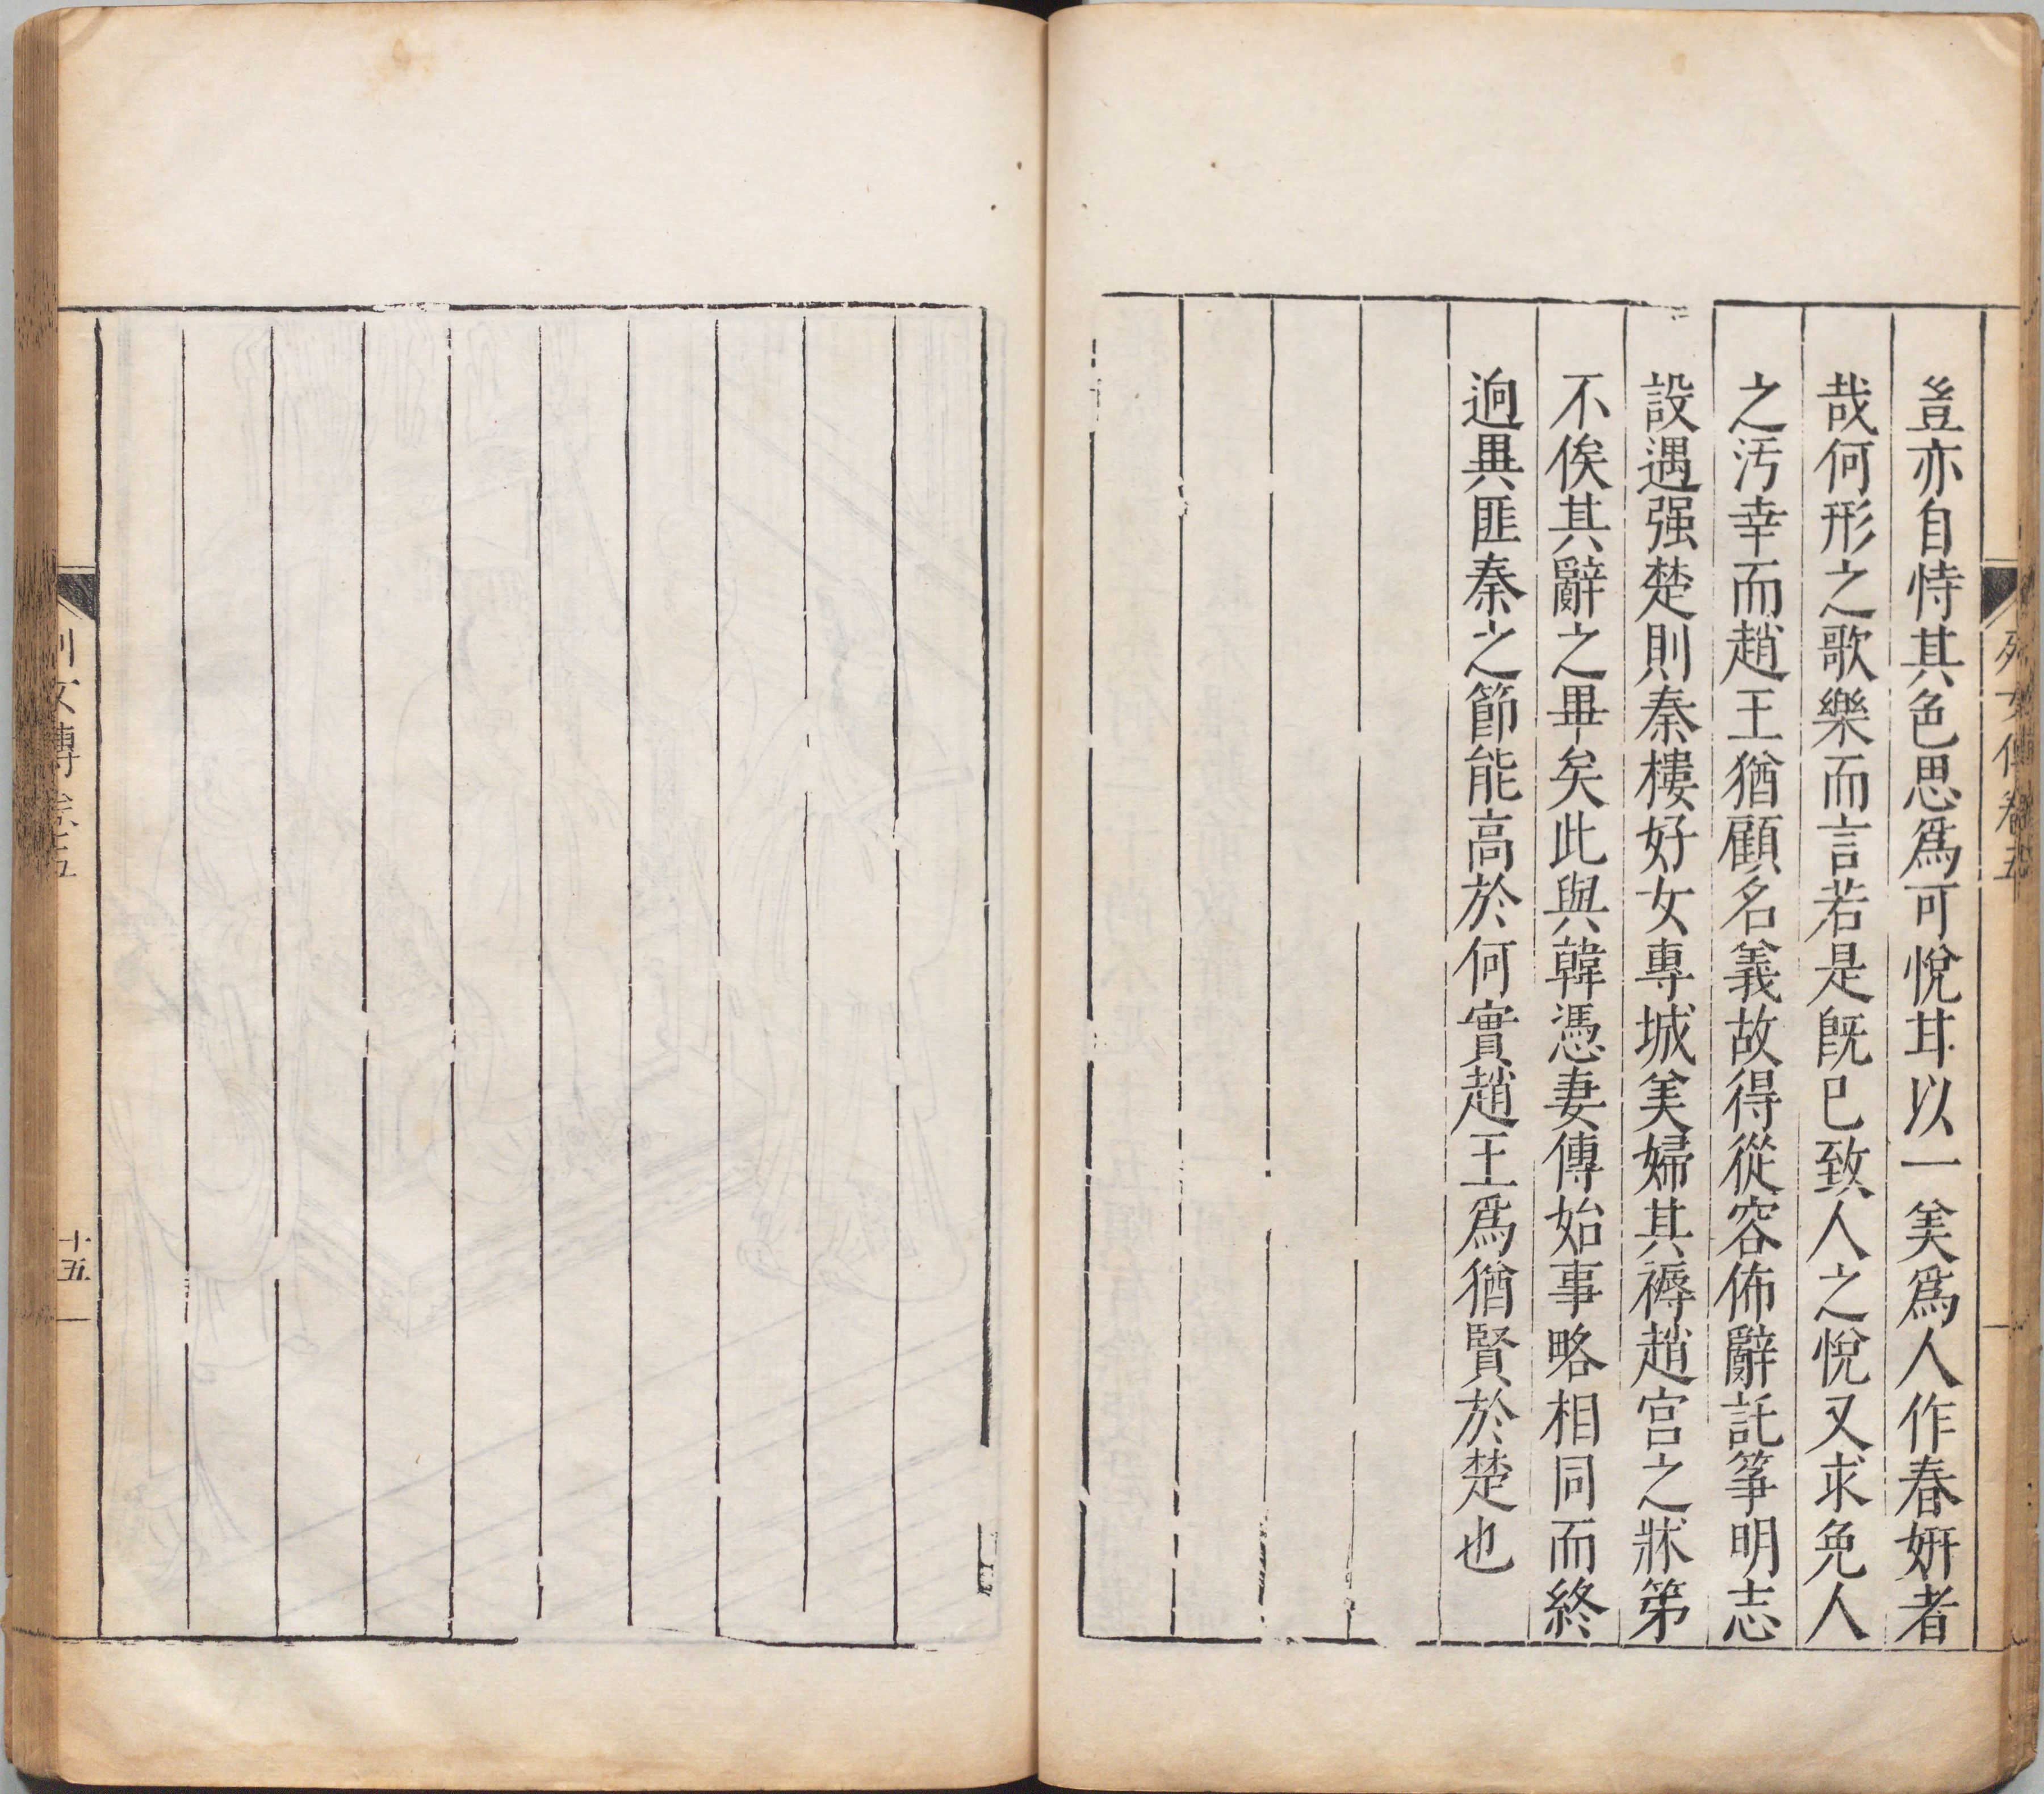 列女傳卷五
豈亦自恃其色思爲可悅耳以一美爲人作春妍者
哉何形之歌樂而言若是旣已致人之悅又求免人
之汚幸而趙王猶顧名義故得從容佈辭託筝明志
設遇强楚則秦樓好女專城美婦其褥趙宮之牀第
不俟其辭之畢矣此與韓憑妻傳始事略相同而終
逈異匪秦之節能高於何實趙王爲猶賢於楚也
列女傳卷五
十五